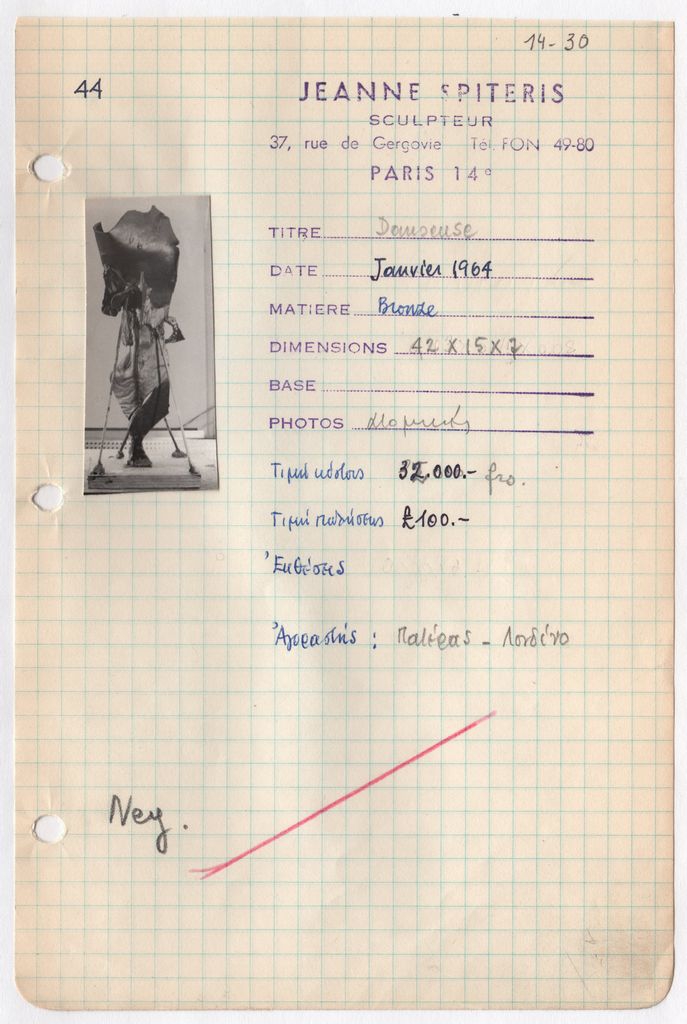 14-30
44
JEANNE SPITERIS
SCULPTEUR
37, rue de Gergovie Tél. FON 49-80
PARIS 14e
TITRE Danseuse
DATE Janvier 1964
MATIERE Bronze
DIMENSIONS 42 X 15 X 7
BASE
PHOTOS
Τιμή κόστους 32.000.- frs.
Τιμή πωλήσεως £100.-
Ἐκθέσεις
Ἀγοραστής : Πατέρας - Λονδίνο
Νεγ.